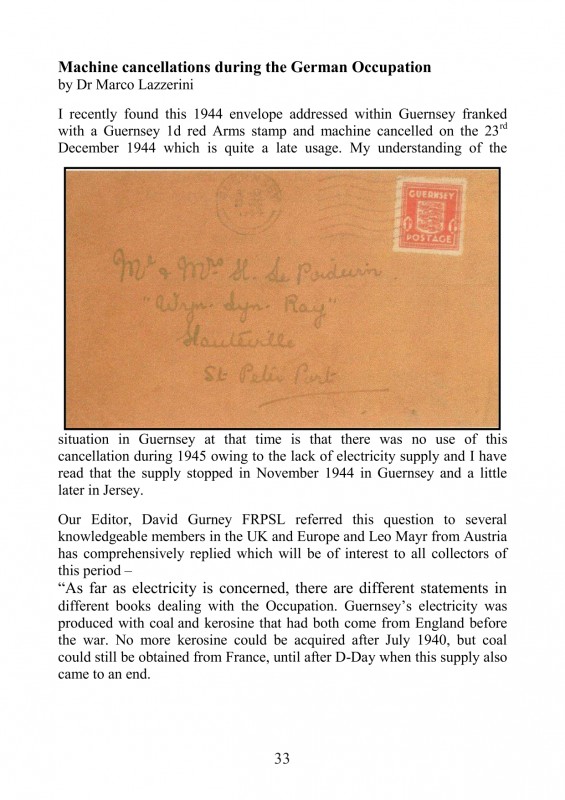 Machine cancellations during the German Occupation
by Dr Marco Lazzerini
I recently found this 1944 envelope addressed within Guernsey franked
with a Guernsey 1d red Arms stamp and machine cancelled on the 23rd
December 1944 which is quite a late usage. My understanding of the
GUERNSEY
POSTAGE
Mr & Mrs H. Le Poidevin.
"Wryn-Lyn-Ray"
Hauteville
St Peter Port
situation in Guernsey at that time is that there was no use of this
cancellation during 1945 owing to the lack of electricity supply and I have
read that the supply stopped in November 1944 in Guernsey and a little
later in Jersey.
Our Editor, David Gurney FRPSL referred this question to several
knowledgeable members in the UK and Europe and Leo Mayr from Austria
has comprehensively replied which will be of interest to all collectors of
this period –
“As far as electricity is concerned, there are different statements in
different books dealing with the Occupation. Guernsey’s electricity was
produced with coal and kerosine that had both come from England before
the war. No more kerosine could be acquired after July 1940, but coal
could still be obtained from France, until after D-Day when this supply also
came to an end.
33